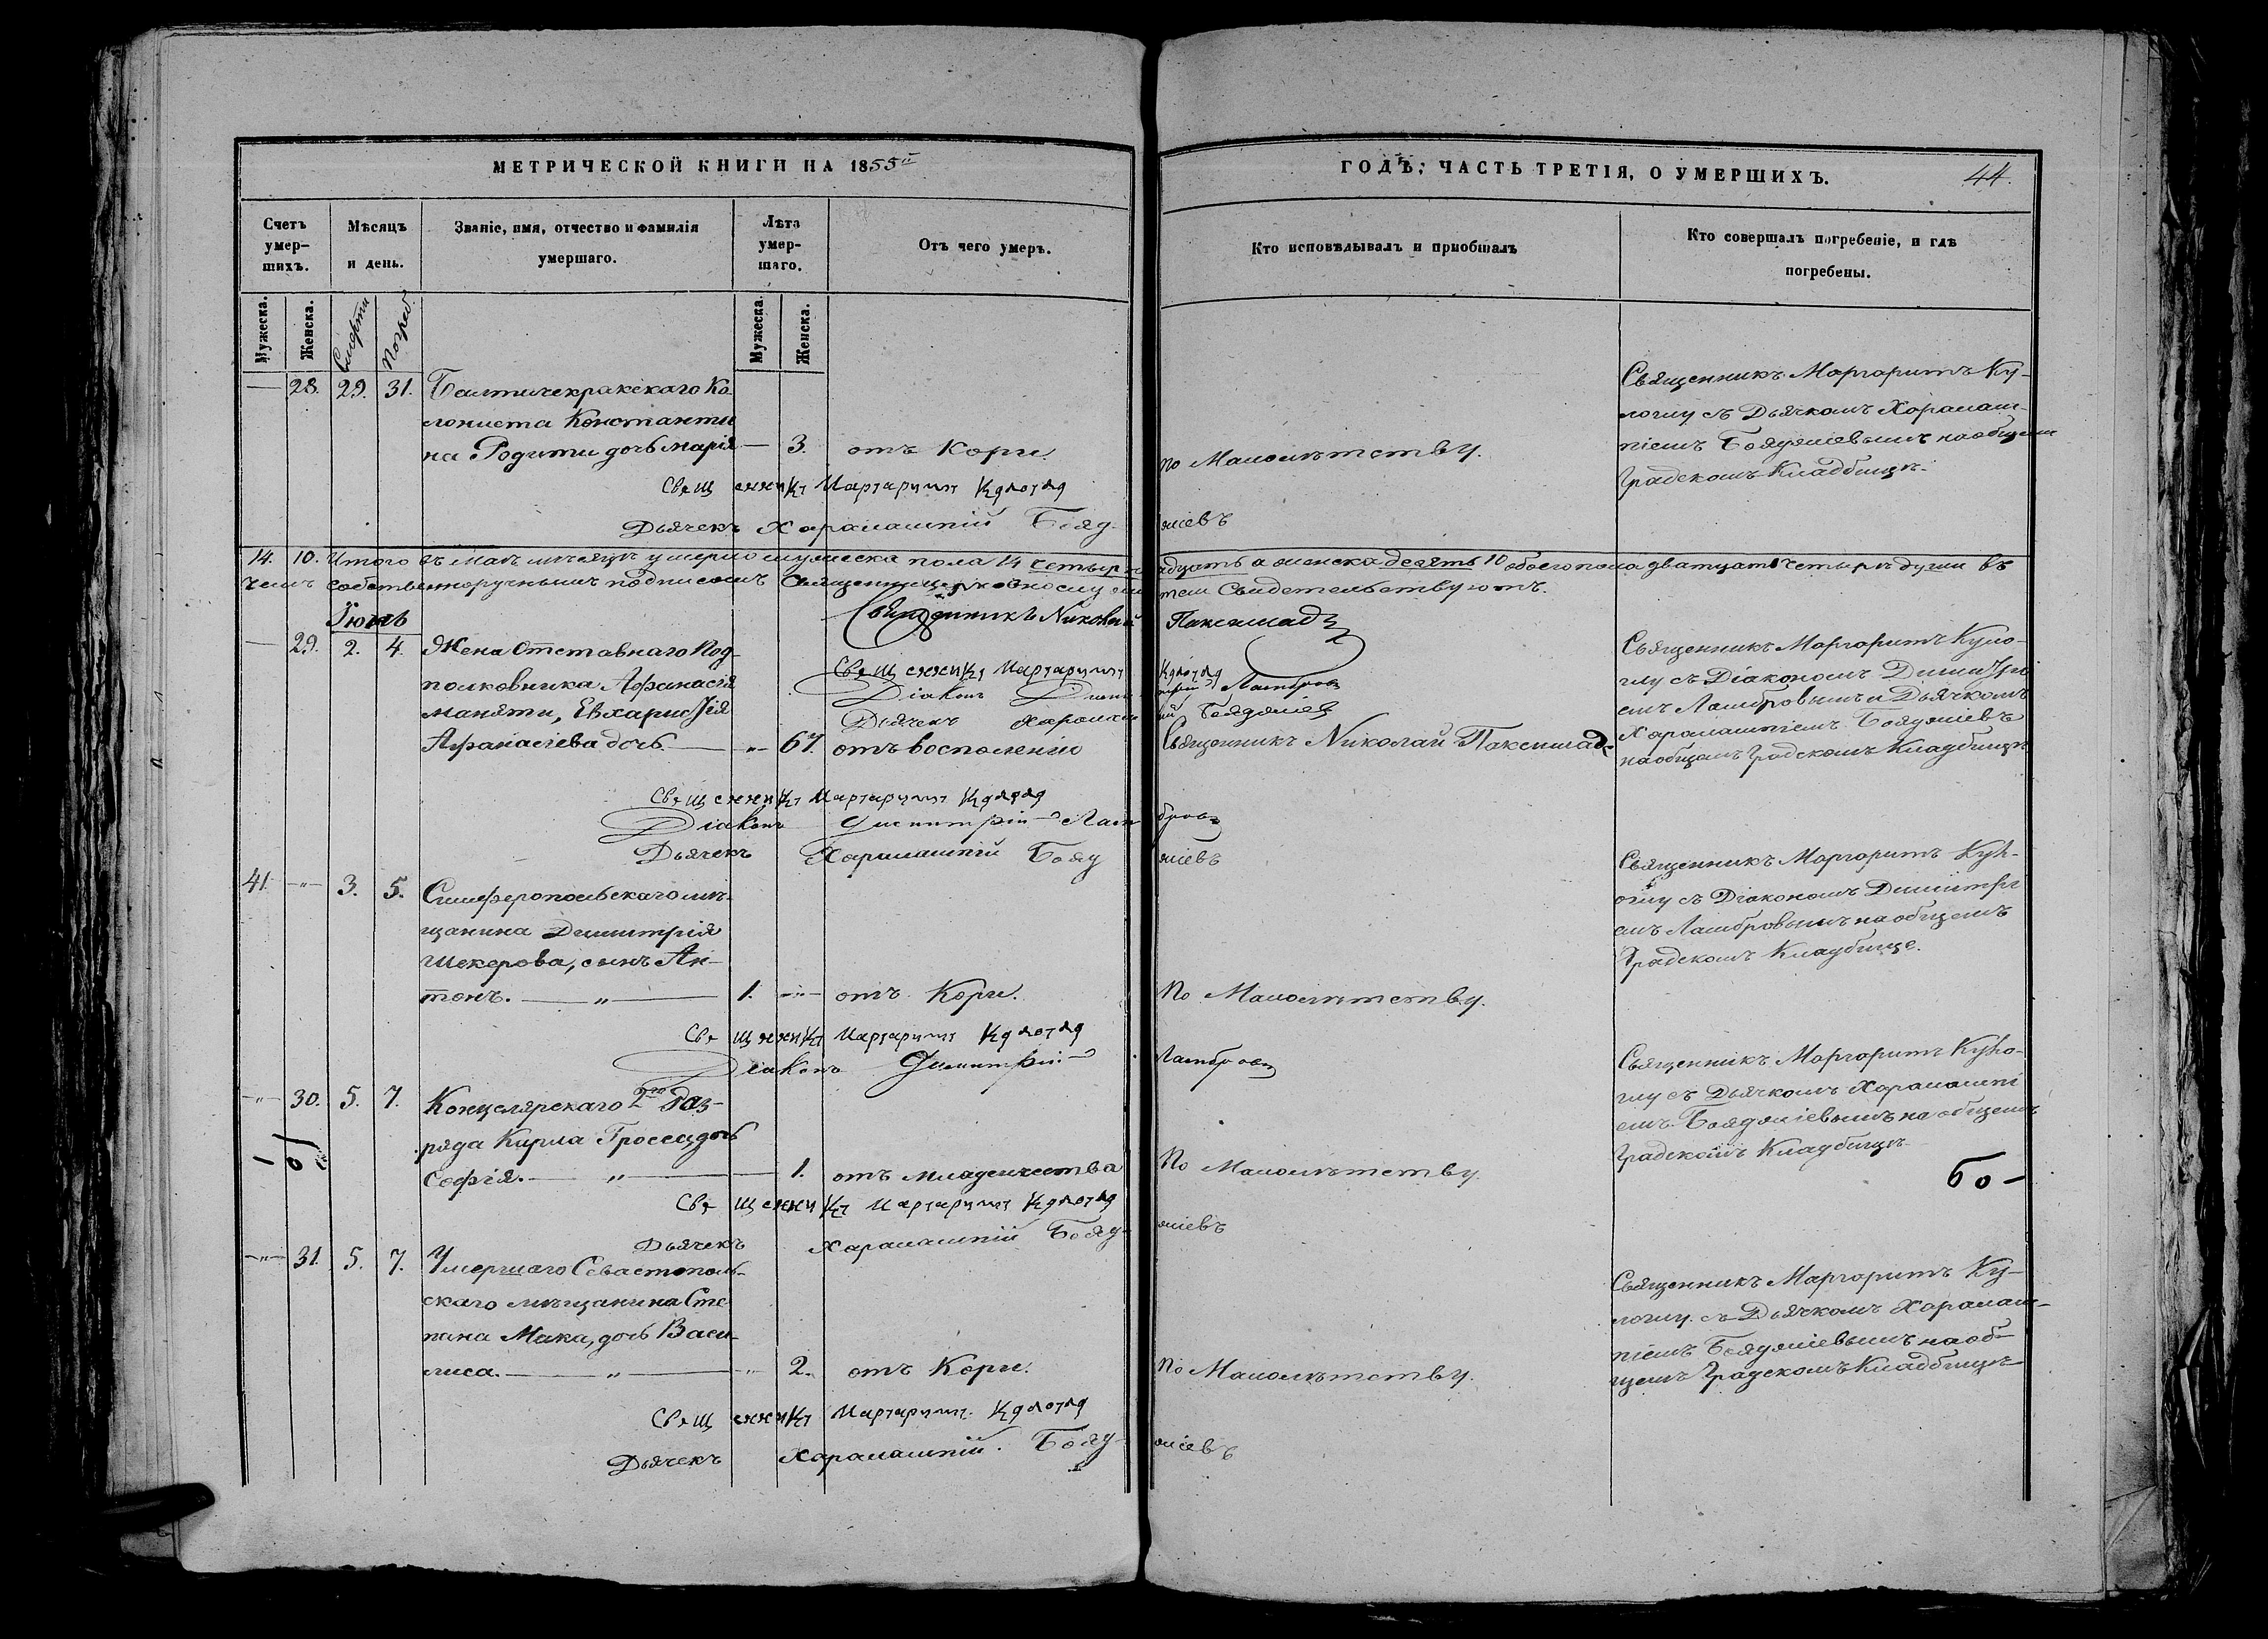 МЕТРИЧЕСКОЙ КНИГИ НА 1855й
ГОДЪ; ЧАСТЬ ТРЕТІЯ, О УМЕРШИХЪ. 44.
Счетъ умер-шихъ.
Мѣсяцъ и день.
Званіе, имя, отчество и фамилія умершаго.
Лѣта умер-шаго.
Отъ чего умеръ.
Кто исповѣдывалъ и пріобщалъ
Кто совершалъ погребеніе, и гдѣ погребены.
Мужеска. Женска. Смерти Погреб. Мужеска. Женска.
— 28. 29. 31.
Колониста Константи
на Родити дочь Марія — 3. отъ Кори. по Малолѣтству.
Священникъ Маргаритъ Ку-
логлу съ Дьячкомъ Харалам-
піемъ Бояджіевымъ на общемъ
Градскомъ Кладбищѣ.
Священникъ Маргаритъ
Дьячекъ Харалампій Бояджіевъ
14. 10. Итого въ маѣ мѣсяцѣ умерло мужеска пола 14 четырнадцать а женска десять 10 обоего пола двадцать четырѣ души въ
чемъ собственноручнымъ подписомъ Священноцерковнослужители Свидетельствуютъ.
Священникъ Николай
Священникъ Маргаритъ
Діаконъ Димитрій Ламбровъ
Дьячекъ Харалампій Бояджіев
Іюнь
— 29. 2. 4. Жена Отставнаго Под-
полковника Афанасія
Маняти, Евхаристія
Афанасіева дочь. — „ — 67. отъ воспаленія Священникъ Николай
Священникъ Маргаритъ Куло-
глу съ Діакономъ Димитрі
емъ Ламбровымъ и Дьячкомъ
Харалампіемъ Бояджіевъ
на общемъ Градскомъ Кладбищѣ
Священникъ Маргаритъ
Діаконъ Димитрій Ламбровъ
Дьячекъ Харалампій Бояджіевъ
41. —„— 3. 5. Симферопольскаго мѣ-
щанина Димитрія
Шекерова, сынъ Ан-
тонъ. — „ — 1. —„— отъ Кори. По Малолѣтству.
Священникъ Маргаритъ Кул-
оглу съ Діакономъ Димитрі
емъ Ламбровымъ на общемъ
Градскомъ Кладбище.
Священникъ Маргаритъ
Діаконъ Димитрій Ламбровъ
—„— 30. 5. 7. Канцелярскаго 2го Раз-
ряда Кирла Гросса дочь
Софія. — „ — 1. отъ младенчества По Малолѣтству.
Священникъ Маргаритъ Куло-
глу съ Дьячкомъ Харалампі
емъ Бояджіевымъ на общемъ
Градскомъ Кладбищѣ
Священникъ Маргаритъ
Дьячекъ Харалампій Бояджіевъ
—„— 31. 5. 7. Умершаго Севастополь-
скаго мѣщанина Сте
пана Мака, дочь Васи-
лиса. — „ — 2. отъ Кори. По Малолѣтству.
Священникъ Маргаритъ Ку-
логлу. съ Дьячкомъ Харалам-
піемъ Бояджіевымъ на об-
щемъ Градскомъ Кладбищѣ
Священникъ Маргаритъ
Дьячекъ Харалампій. Бояджіевъ